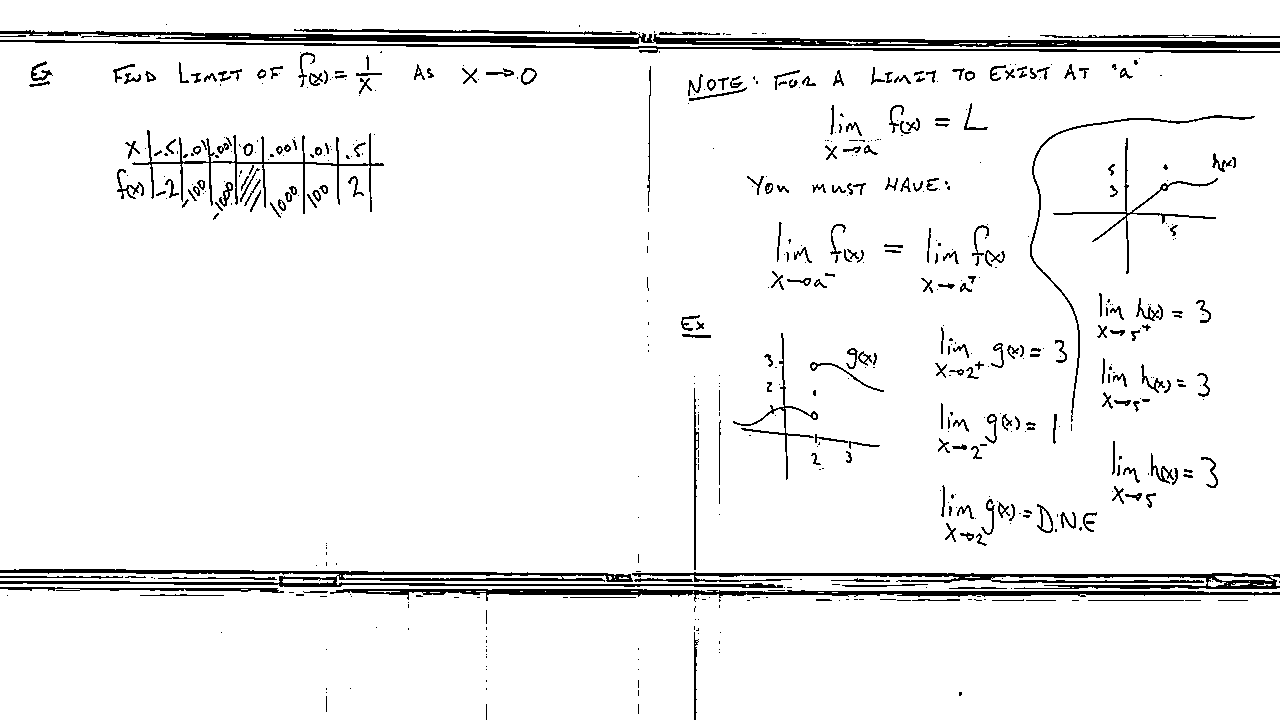 Ex FIND LIMIT OF f(x) = 1/x AS x → 0
x | -.5 | -.01 | -.001 | 0 | .001 | .01 | .5
f(x) | -2 | -100 | -1000 | | 1000 | 100 | 2
NOTE: FOR A LIMIT TO EXIST AT "a"
lim x→a f(x) = L
YOU MUST HAVE:
lim x→a⁻ f(x) = lim x→a⁺ f(x)
Ex
3
2
1
g(x)
2 3
lim x→2⁺ g(x) = 3
lim x→2⁻ g(x) = 1
lim x→2 g(x) = D.N.E
5
3
h(x)
5
lim x→5⁺ h(x) = 3
lim x→5⁻ h(x) = 3
lim x→5 h(x) = 3